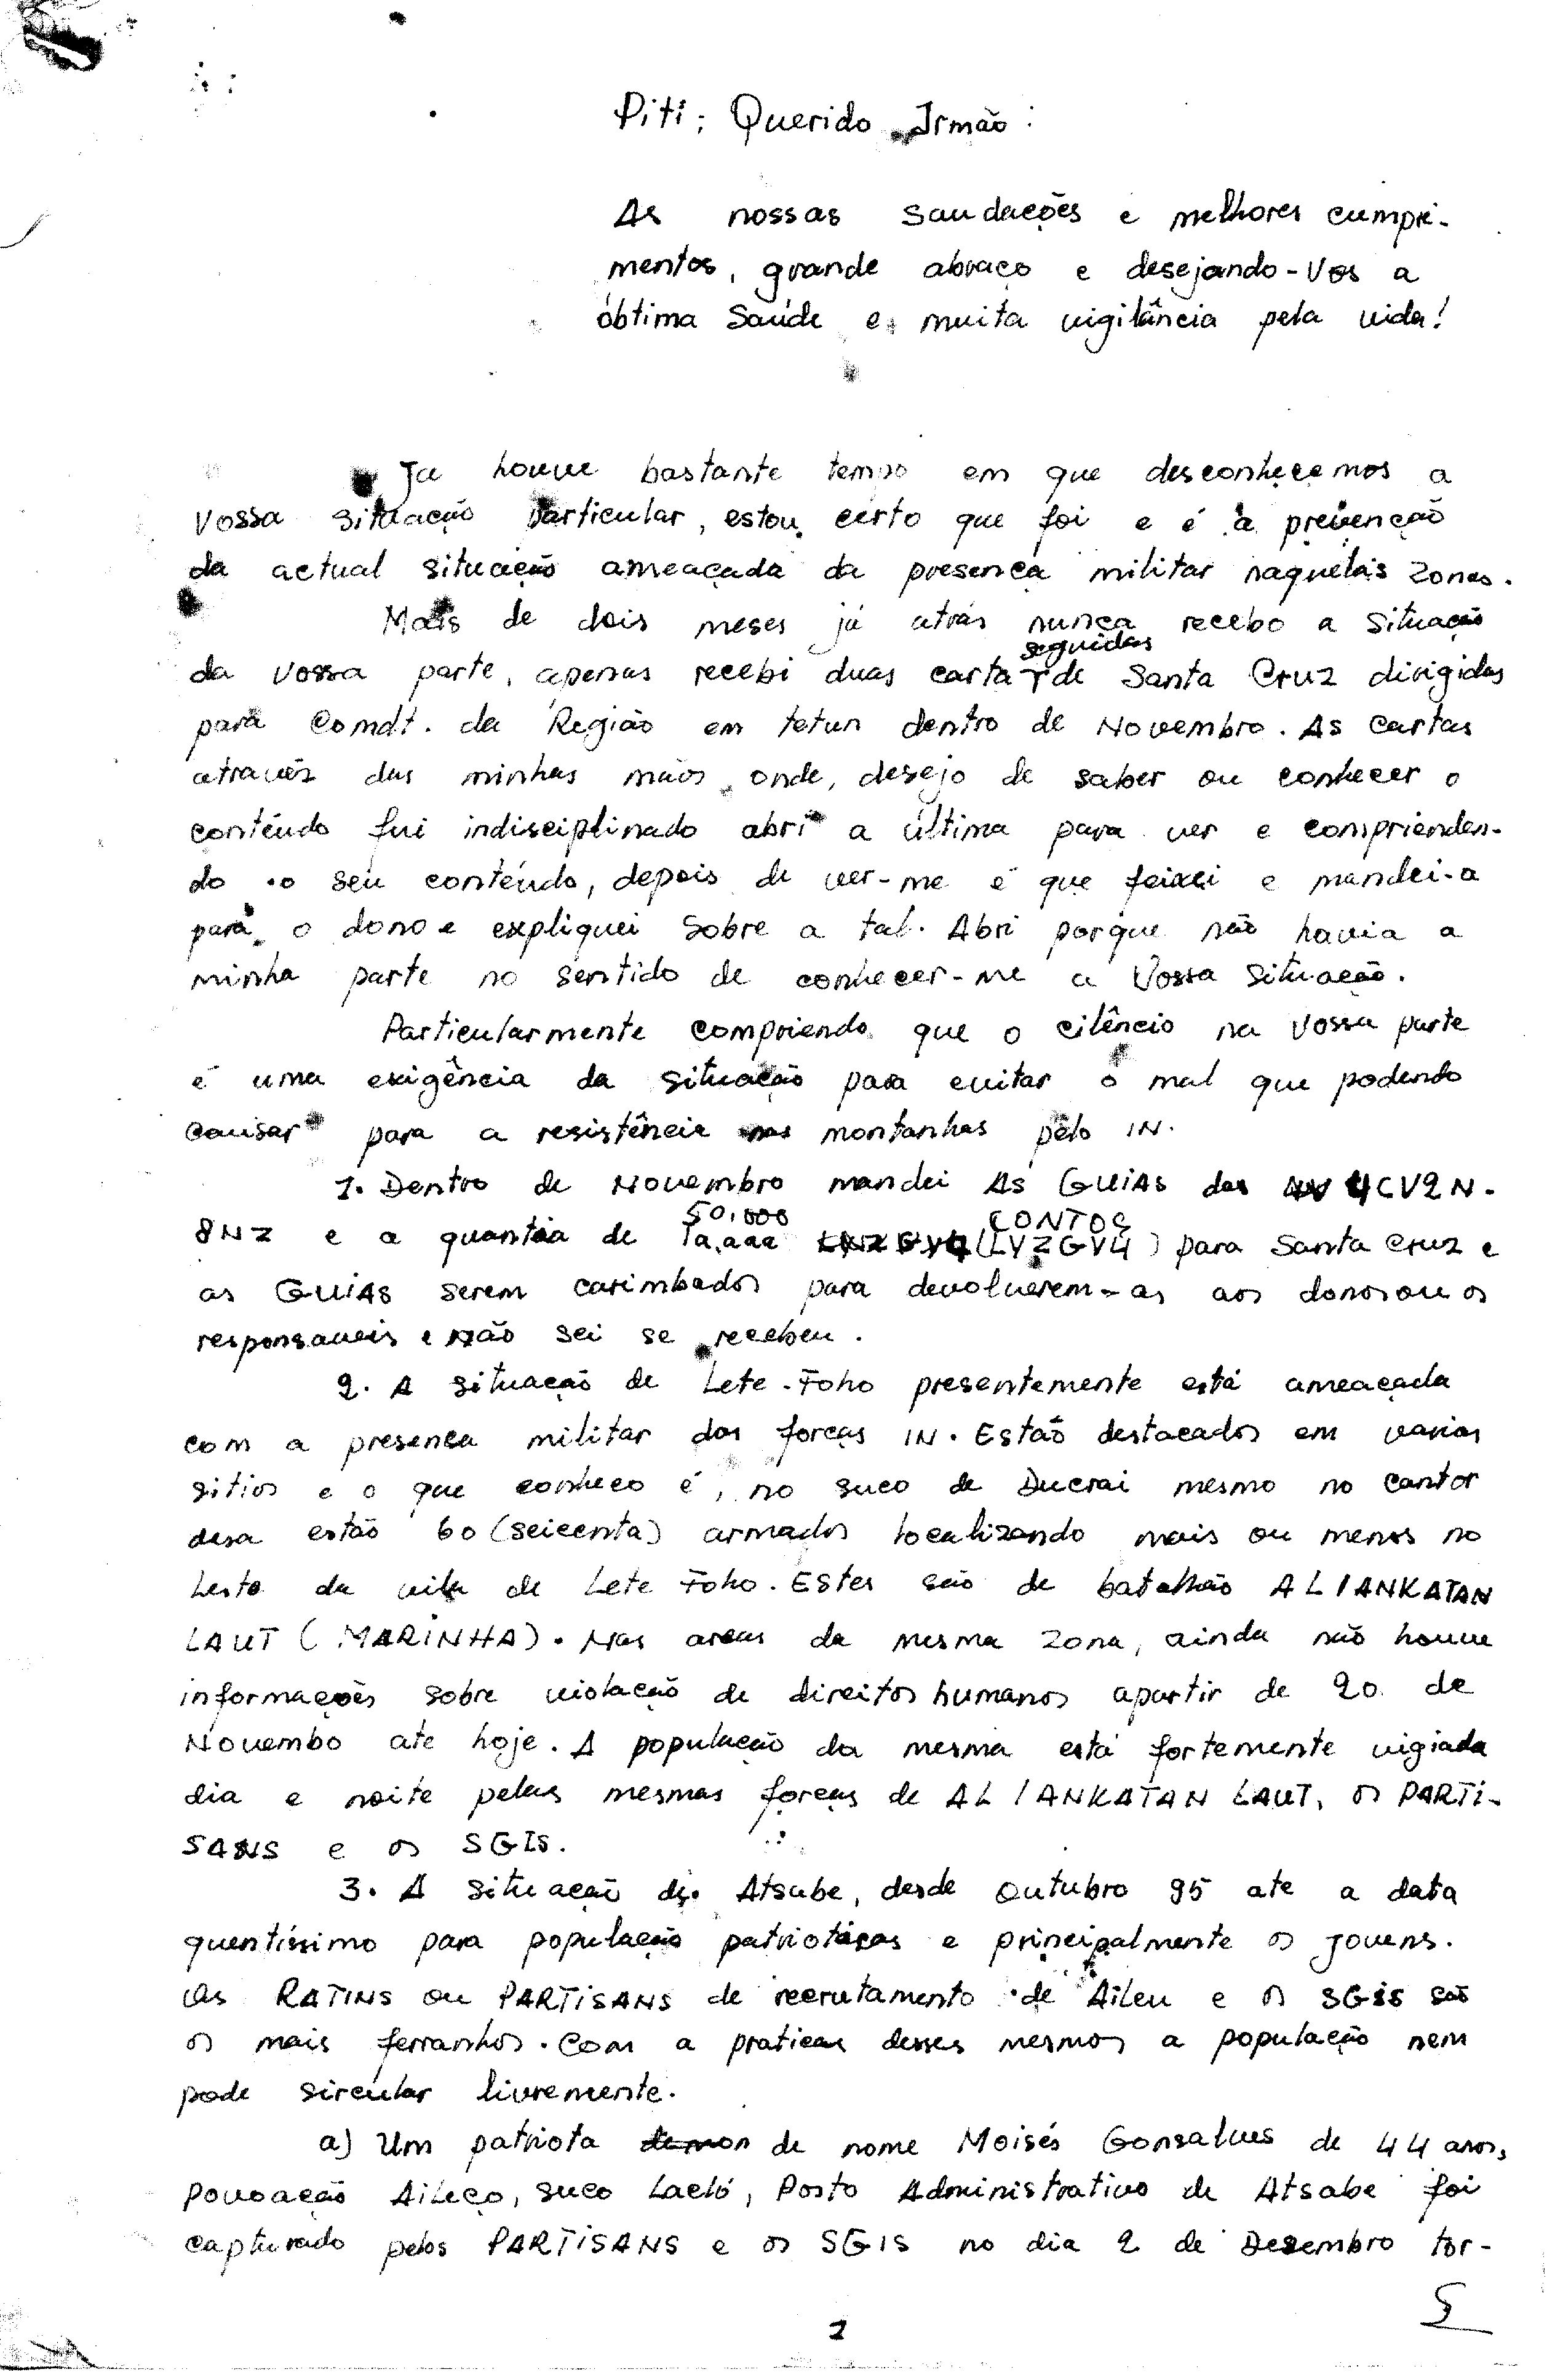 Piti: Querido Irmão:
As nossas saudações e melhores cumpri-
mentos, grande abraço e desejando-Vos a
óbtima Saúde e muita vigilância pela vida!
Ja houve bastante tempo em que desconhecemos a
Vossa situação particular, estou certo que foi e é a prevenção
da actual situação ameaçada da presença militar naquelas zonas.
Mais de dois meses já atrás nunca recebo a situação
seguidas
da vossa parte, apenas recebi duas cartas de Santa Cruz dirigidas
para Comdt. da Região em tetun dentro de Novembro. As cartas
através das minhas mãos, onde, desejo de saber ou conhecer o
contéudo fui indisciplinado abri a última para ver e comprienden-
do o seu contéudo, depois de ver-me é que feixei e mandei-a
para o dono e expliquei sobre a tal. Abri porque não havia a
minha parte no sentido de conhecer-me a Vossa situação.
Particularmente compriendo que o cilêncio na vossa parte
é uma exigência da situação para evitar o mal que podendo
causar para a resistência nas montanhas pelo IN.
1. Dentro de Novembro mandei As GUIAS das 4CV2N.
50.000 CONTOS
8NZ e a quantia de 1a.aaa (LVZGV4) para Santa Cruz e
as GUIAS serem carimbados para devolverem-as aos donos ou os
responsaveis e não sei se recebeu.
2. A situação de Lete-Foho presentemente está ameaçada
com a presença militar das forças IN. Estão destacados em varios
sitios e o que conheço é, no suco de Ducrai mesmo no cantor
desa estão 60 (seicenta) armados localizando mais ou menos no
Leste da vila de Lete Foho. Estes são de batalhão AL/ANKATAN
LAUT (MARINHA). Nas areas da mesma zona, ainda não houve
informações sobre violação de direitos humanos apartir de 20 de
Novembo ate hoje. A população da mesma está fortemente vigiada
dia e noite pelas mesmas forças de AL/ANKATAN LAUT, os PARTI-
SANS e os SGIS.
3. A situação de Atsabe, desde Outubro 95 ate a data
quentíssimo para população patrioticas e principalmente os jovens.
Os RATINS ou PARTISANS de recrutamento de Aileu e os SGIS são
os mais ferranhos. Com a praticas desses mesmos a população nem
pode sircular livremente.
a) Um patriota de nome Moisés Gonsalves de 44 anos,
povoação Aileço, suco Lacló, Posto Administrativo de Atsabe foi
capturado pelos PARTISANS e os SGIS no dia 2 de Desembro tor-
1